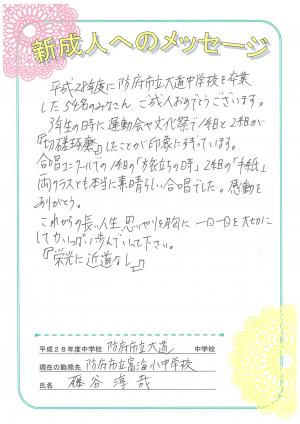 新成人へのメッセージ
平成28年度に防府市立大道中学校を卒業
した54名のみなさん、ご成人おめでとうございます。
3年生の時に運動会や文化祭で1組と2組が
『切磋琢磨』したことが印象に残っています。
合唱コンクールでの1組の「旅立ちの時」2組の「手紙」
両クラスとも本当に素晴らしい合唱でした。感動を
ありがとう。
これからの長い人生、思いやりを胸に一日一日を大切に
して力いっぱい歩んでいって下さい。
『栄光に近道なし』
平成28年度中学校 防府市立大道 中学校
現在の勤務先 防府市立富海小中学校
氏名 藤谷淳哉